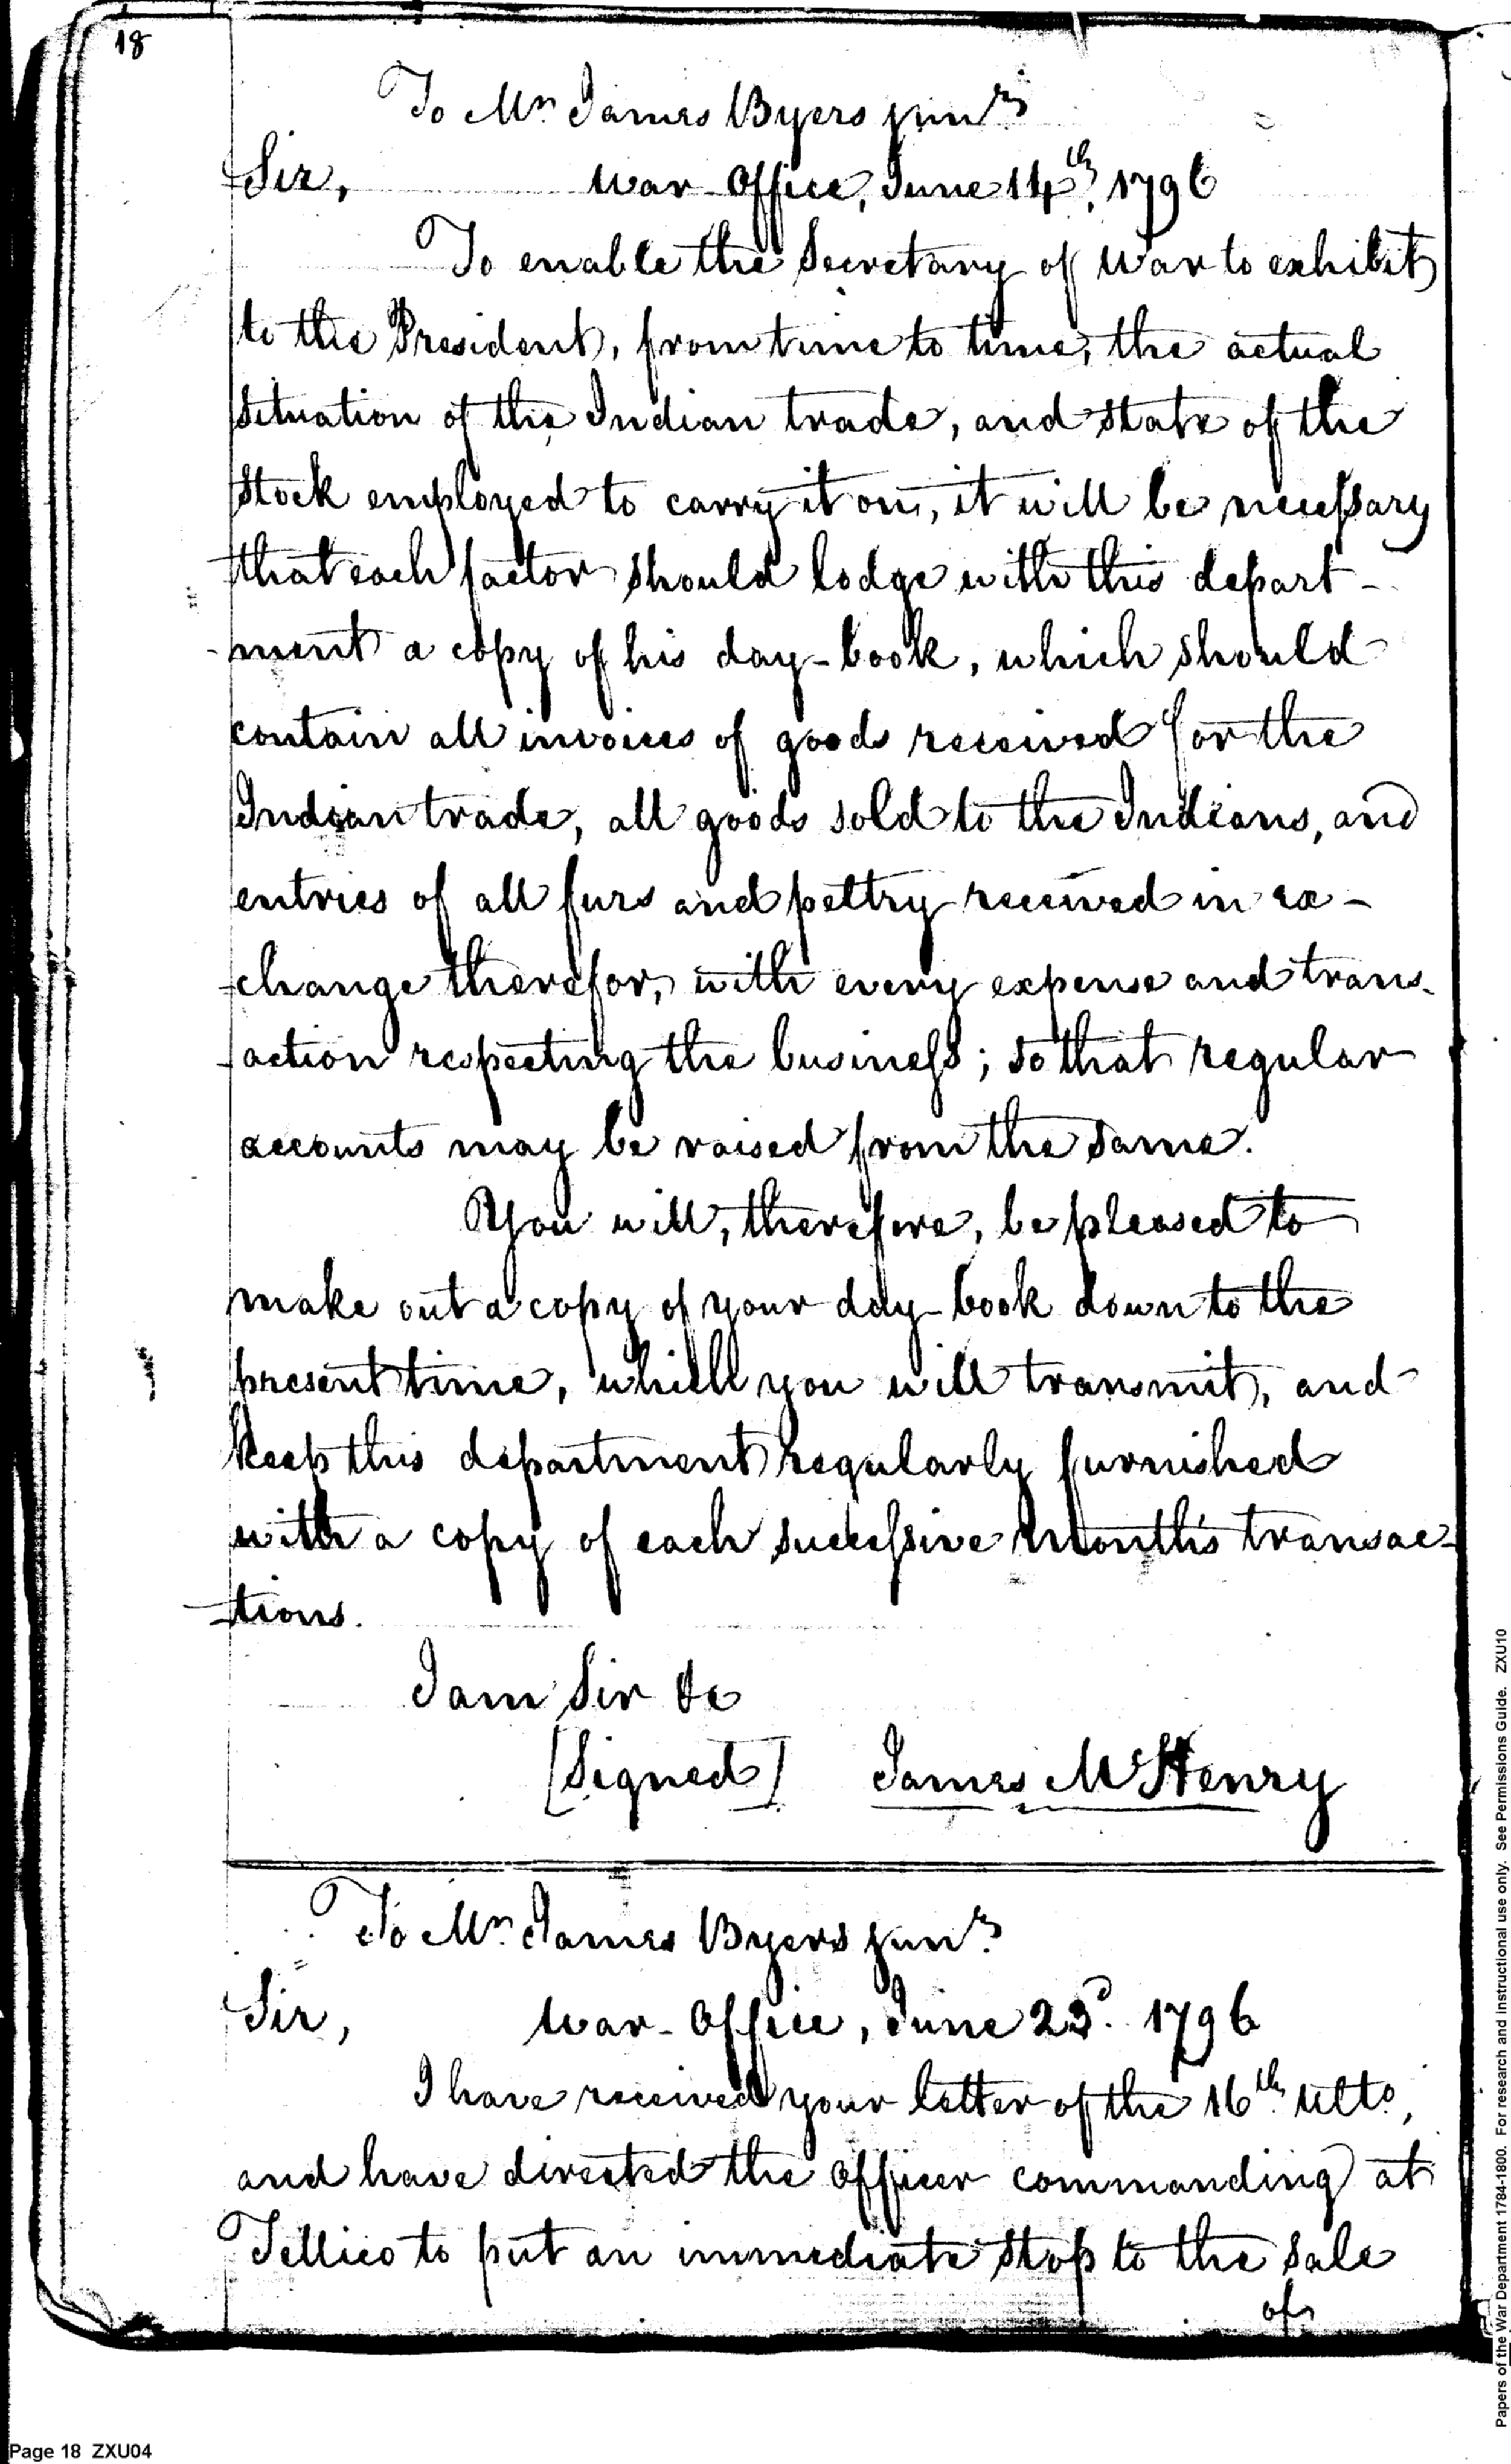 18
To Mr. James Byers junr.
Sir, War-Office, June 14th, 1796
To enable the Secretary of War to exhibit
to the President, from time to time, the actual
situation of the Indian trade, and state of the
stock employed to carry it on, it will be necessary
that each factor should lodge with this depart-
-ment a copy of his day-book, which should
contain all invoices of goods received for the
Indian trade, all goods sold to the Indians, and
entries of all furs and peltry received in ex-
-change therefor, with every expense and trans-
-action respecting the business; so that regular
accounts may be raised from the same.
You will, therefore, be pleased to
make out a copy of your day-book down to the
present time, which you will transmit, and
keep this department regularly furnished
with a copy of each successive month's transac-
-tions.
I am Sir &c
[Signed] James McHenry
To Mr. James Byers junr.
Sir, War-Office, June 23d. 1796
I have received your letter of the 16th. Ulto,
and have directed the officer commanding at
Tellico to put an immediate stop to the sale
of
Page 18 ZXU04
Papers of the War Department 1784-1800. For research and instructional use only. See Permissions Guide. ZXU10